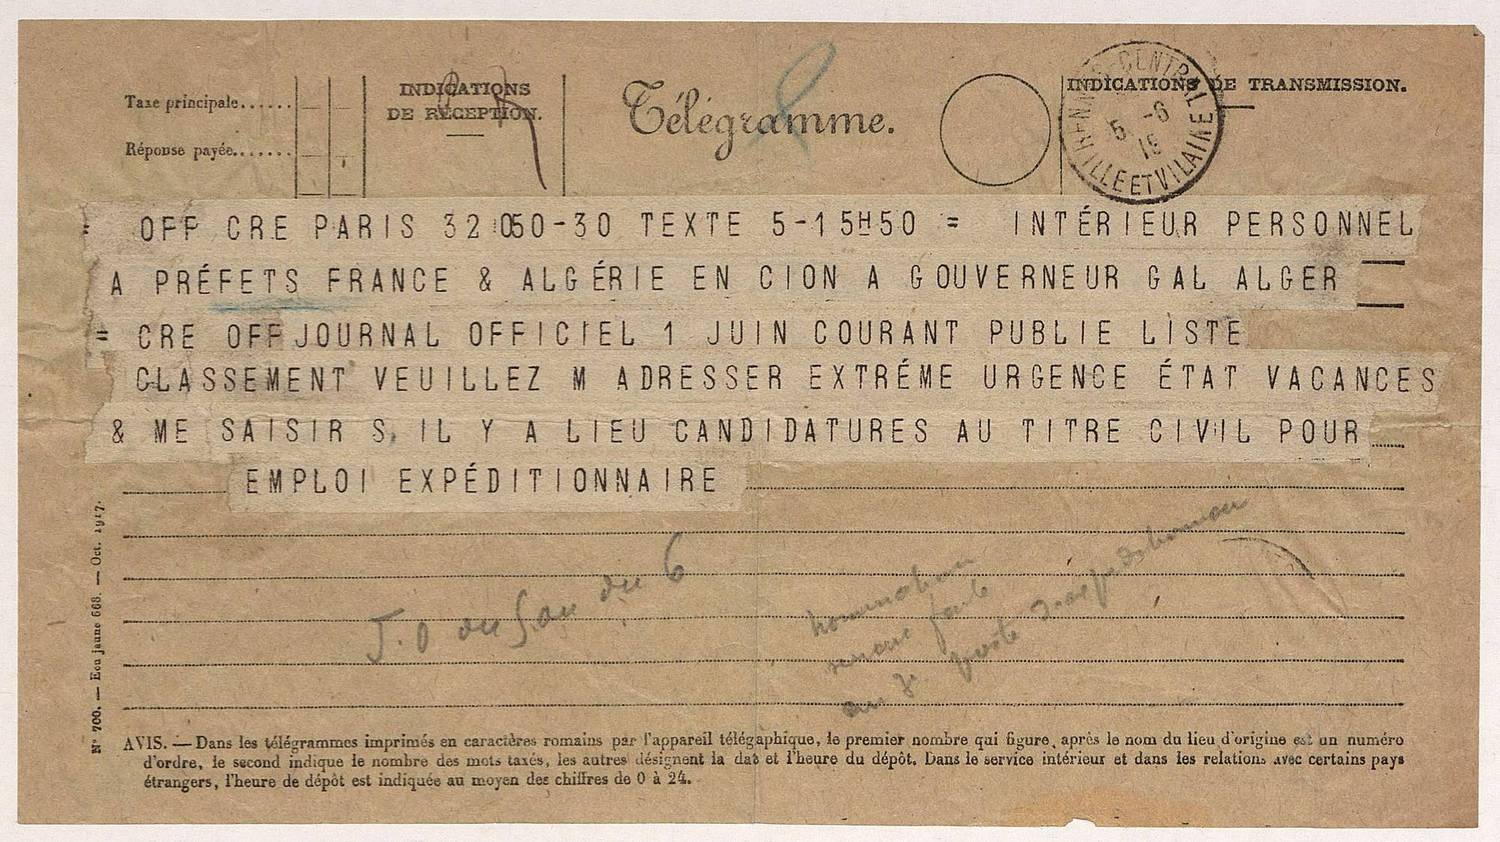 Taxe principale......
Réponse payée.......
INDICATIONS
DE RÉCEPTION.
Télégramme.
INDICATIONS DE TRANSMISSION.
RENNES-CENTRAL
5 -6
ILLE ET VILAINE
OFF CRE PARIS 32 050-30 TEXTE 5-15H50 = INTÉRIEUR PERSONNEL
A PRÉFETS FRANCE & ALGÉRIE EN CION A GOUVERNEUR GAL ALGER
= CRE OFF JOURNAL OFFICIEL 1 JUIN COURANT PUBLIE LISTE
CLASSEMENT VEUILLEZ M ADRESSER EXTRÉME URGENCE ÉTAT VACANCES
& ME SAISIR S, IL Y A LIEU CANDIDATURES AU TITRE CIVIL POUR
EMPLOI EXPÉDITIONNAIRE
J.O du du 6
nomination
faite
au poste
N° 700. — Ecu jaune 668. — Oct. 1917.
AVIS. — Dans les télégrammes imprimés en caractères romains par l'appareil télégaphique, le premier nombre qui figure, après le nom du lieu d'origine est un numéro
d'ordre, le second indique le nombre des mots taxés, les autres désignent la dat et l'heure du dépôt. Dans le service intérieur et dans les relations avec certains pays
étrangers, l'heure de dépôt est indiquée au moyen des chiffres de 0 à 24.